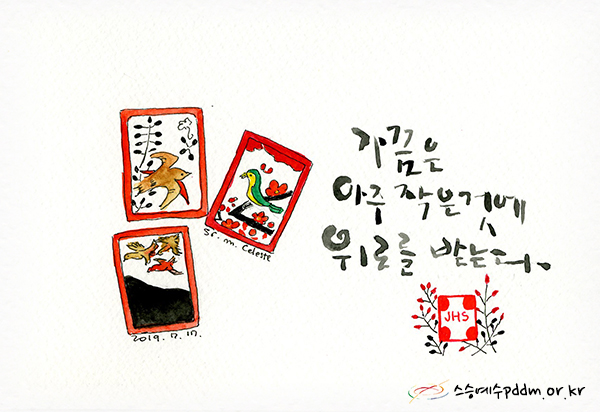 가끔은
아주 작은것에
위로를 받는다.
Sr. m. Celeste
2019. 7. 17.
JHS
스승예수pddm.or.kr